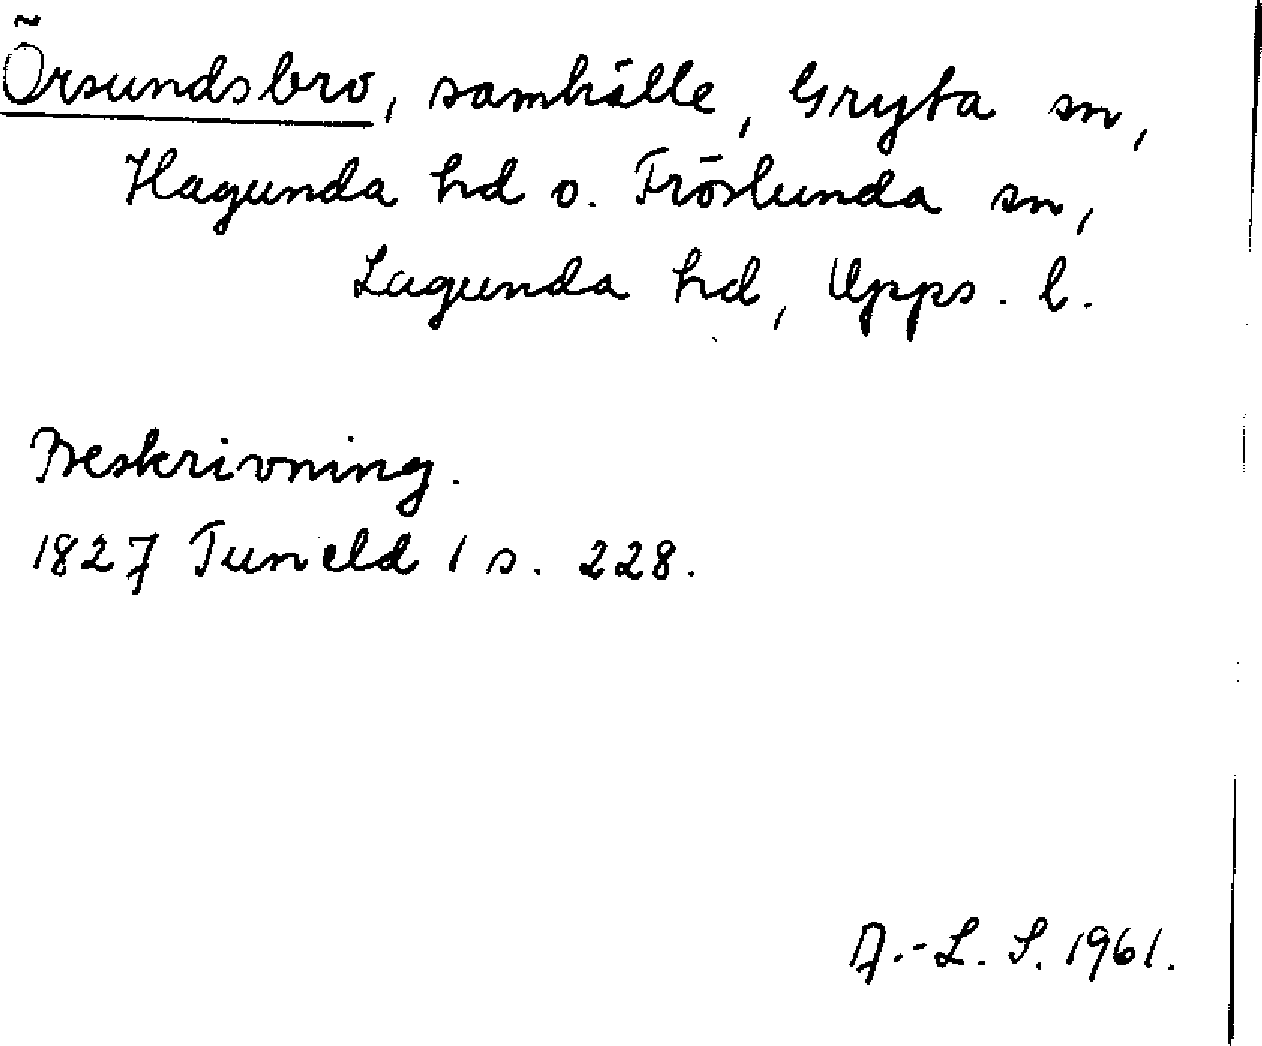 Örsundsbro, samhälle, Gryta sn,
Hagunda hd o. Fröslunda sn,
Lagunda hd, Upps. l.
Beskrivning.
1827 Tuneld 1 s. 228.
A.-L. S. 1961.